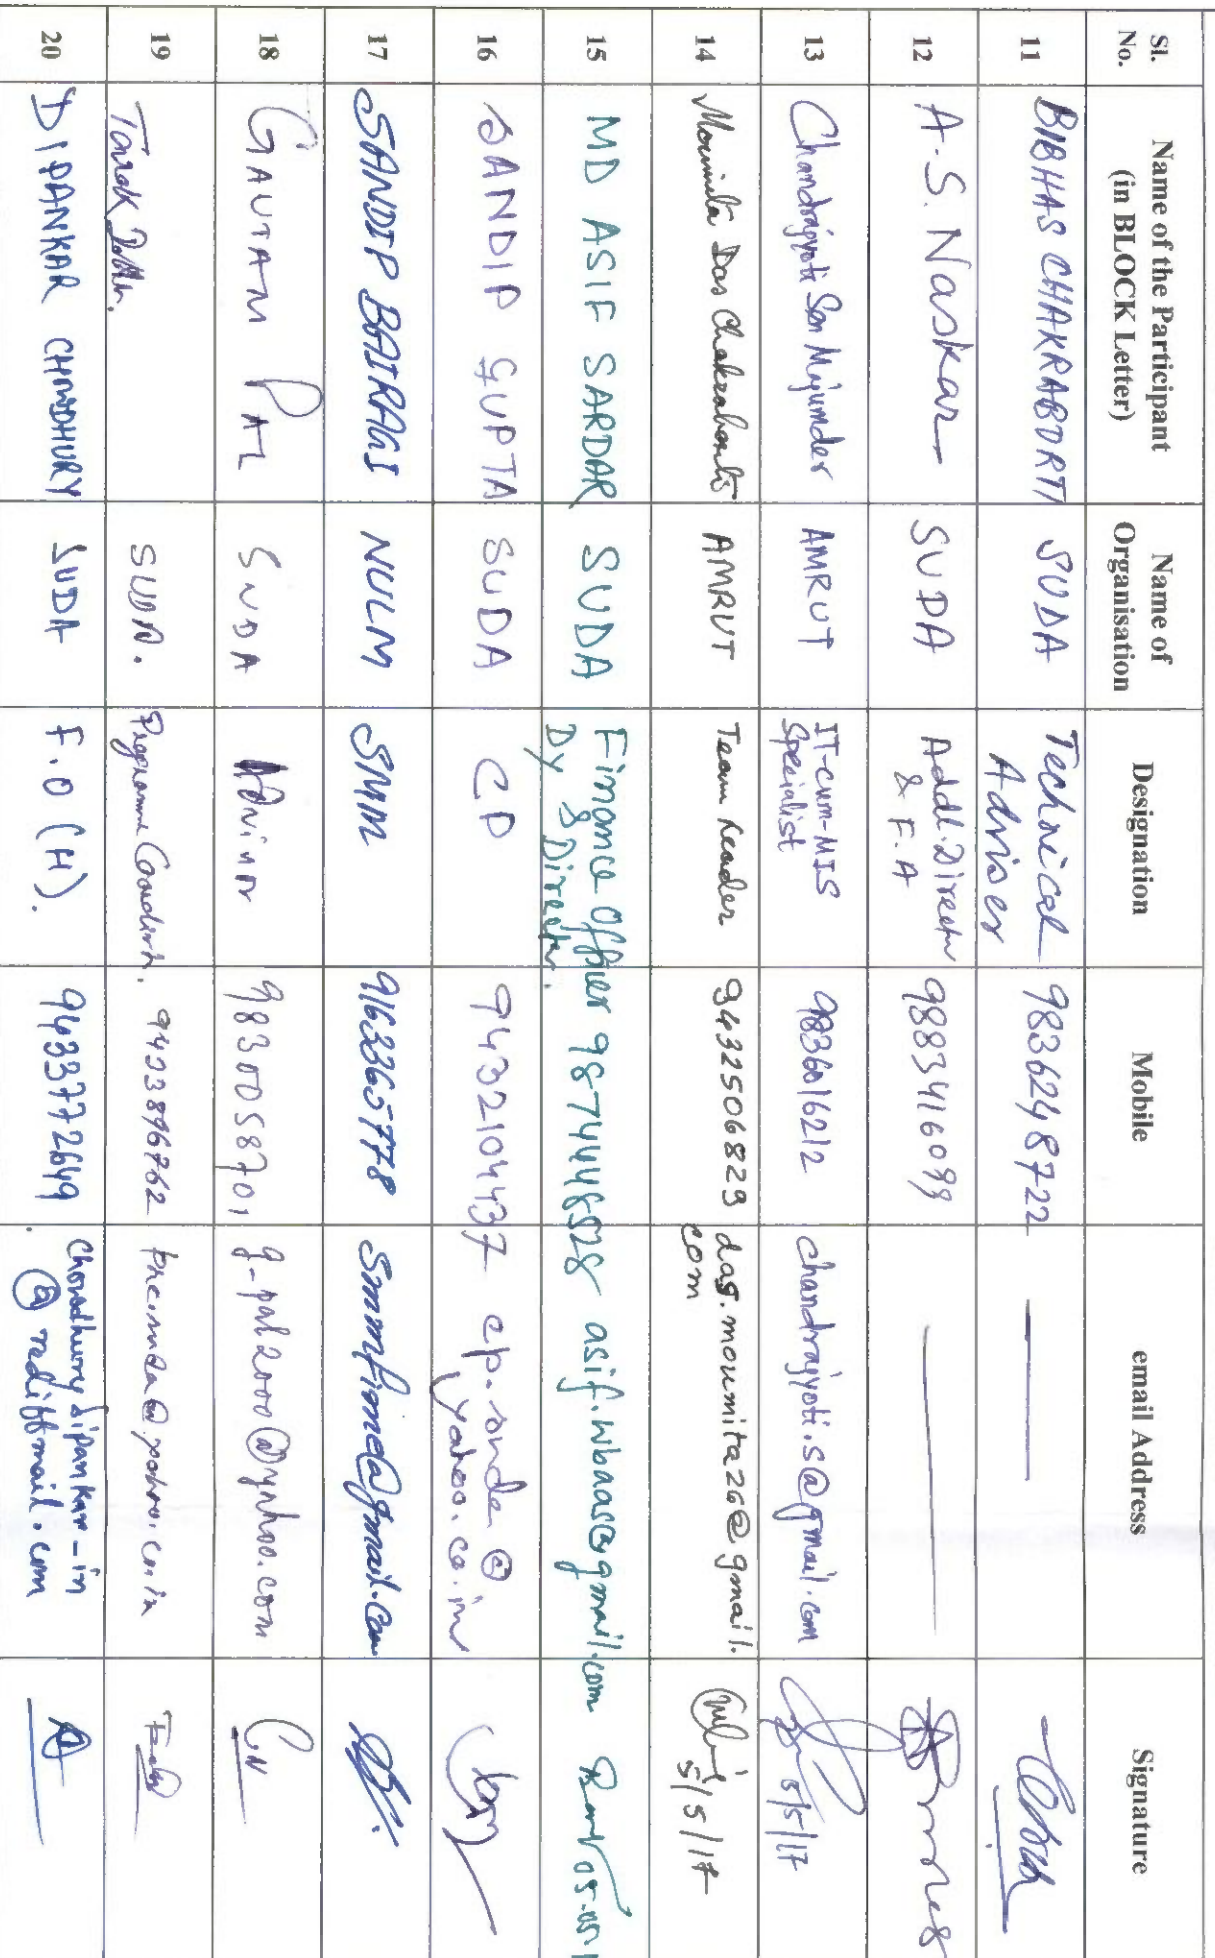 Sl. No. Name of the Participant (in BLOCK Letter) Name of Organisation Designation Mobile email Address Signature
11 BIBHAS CHAKRABORTI SUDA Technical Adviser 9836248722 —
12 A.S. Naskar SUDA Addl. Director & F.A 9883416099 —
13 Chandrajyoti Sen Majumder AMRUT IT-cum-MIS Specialist 9836016212 chandrajyoti.s@gmail.com 5/5/17
14 Moumita Das Chakraborty AMRUT Team Leader 9432506829 das.moumita26@gmail.com 5/5/17
15 MD ASIF SARDAR SUDA Finance Officer & Dy Director. 9874448528 asif.wbaas@gmail.com
16 SANDIP GUPTA SUDA CP 9432104437 cp.suda@yahoo.co.in
17 SANDIP BAIRAGI NULM SMM 9163365778 smmfime@gmail.com
18 GAUTAM PAL SUDA Advisor 9830058701 g-pal2000@yahoo.com
19 Tarak SUDA. Programme 9433896762
20 DIPANKAR CHOWDHURY SUDA F.O (H). 9433772649 chowdhury dipankar-in @ rediffmail.com